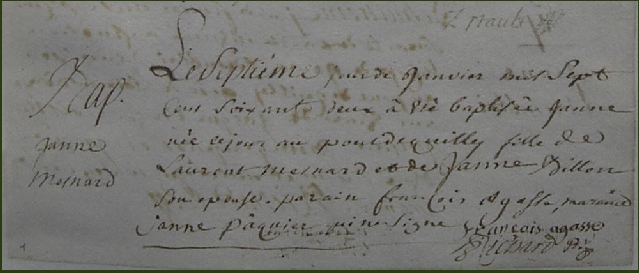 Bap.
janne
mesnard
Le Septiéme jour de janvier mil Sept
Cent Soixant deux à été baptisée janne
née ce jour au pont de filly fille de
Laurent mesnard et de janne Dillon
Son epouse. parain françois agasse, maraine
janne pâquier qui ne Signe françois agasse
Richard